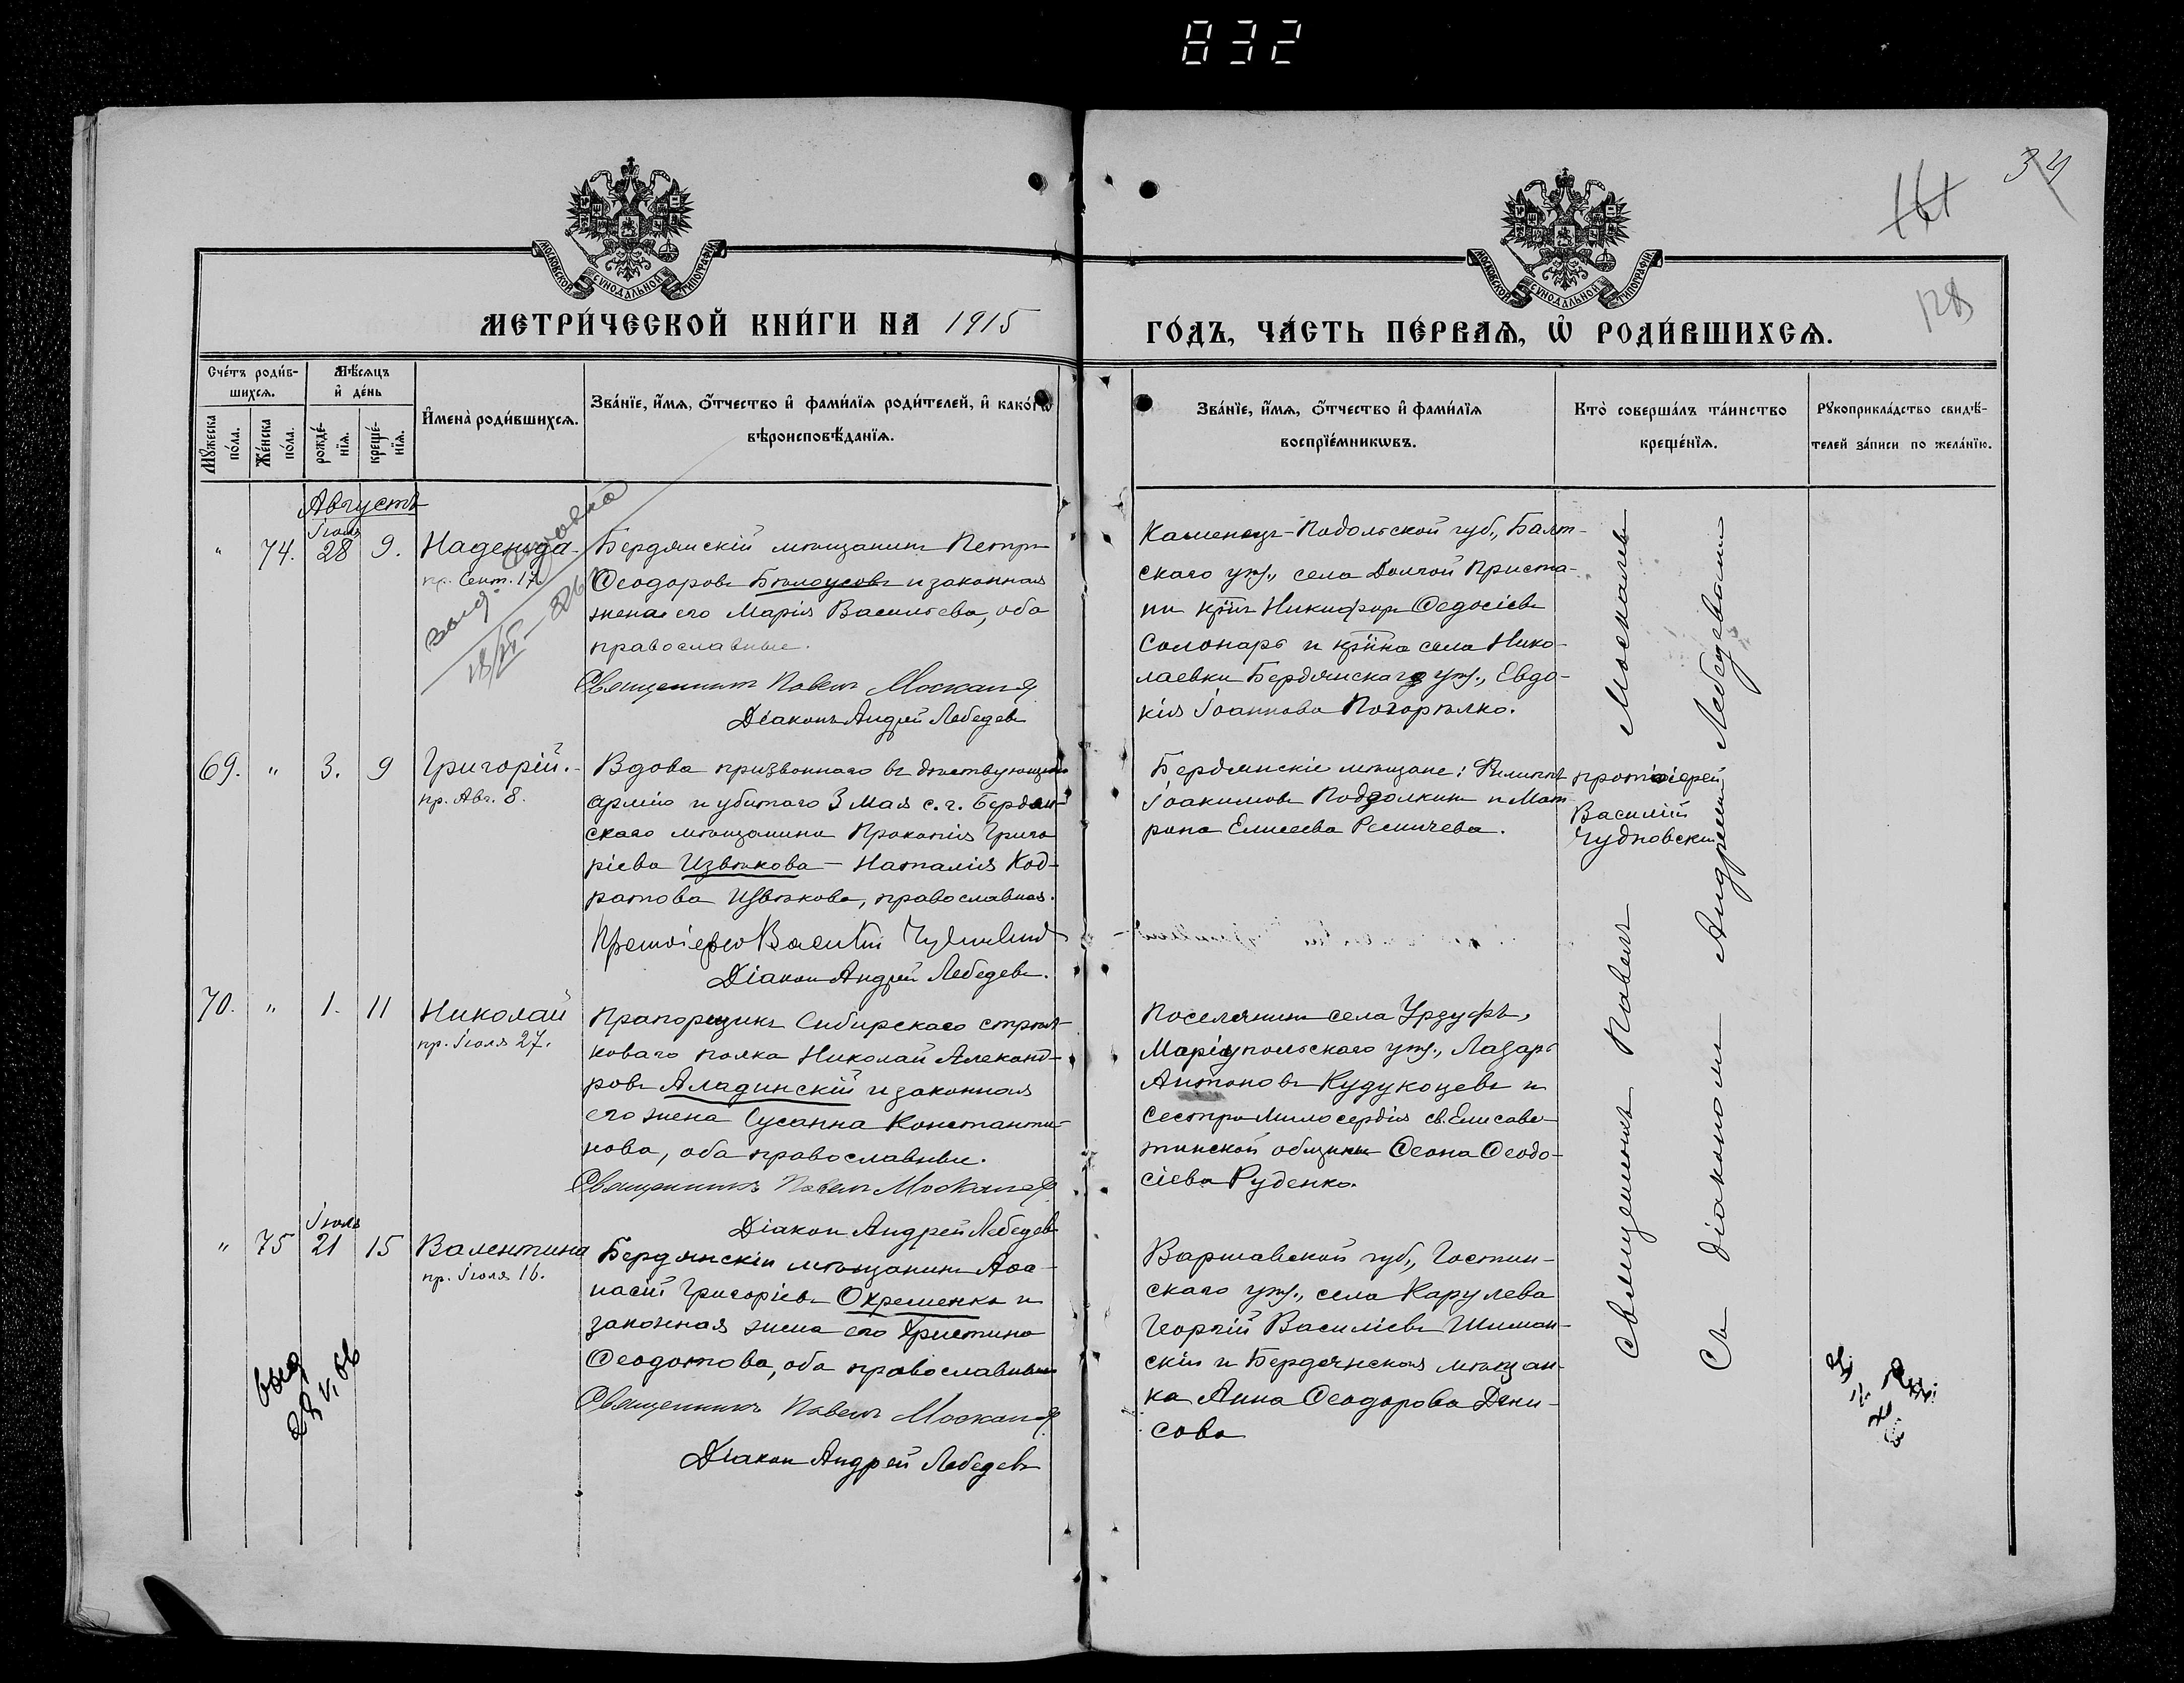 832
34
161
128
МОСКОВСКОЙ СѴНОДАЛЬНОЙ ТИПОГРАФІИ
МОСКОВСКОЙ СѴНОДАЛЬНОЙ ТИПОГРАФІИ
МЕТРИ́ЧЕСКОЙ КНИ́ГИ НА 1915
ГО́ДЪ, ЧА́СТЬ ПЕ́РВАѦ, Ѡ҆ РОДИ́ВШИХСѦ.
Сче́тъ роди́в-
шихсѧ.
Мѣ́сѧцъ
и҆ де́нь
Мꙋ́жеска
по́ла.
Же́нска
по́ла.
рожде́-
нїѧ.
креще́-
нїѧ.
И҆мена̀ роди́вшихсѧ.
Зва́нїе, и҆́мѧ, ѻ҆́тчество и҆ фами́лїѧ роди́телей, и҆ како́гѡ
вѣроисповѣ́данїѧ.
Зва́нїе, и҆́мѧ, ѻ҆́тчество и҆ фами́лїѧ
воспрїе́мникѡвъ.
Кто̀ соверша́лъ та́инство
креще́нїѧ.
Рꙋкоприкла́дство свидѣ́-
телей за́писи по жела́нїю.
Августъ
" 74. Іюля 28 9. Надежда
пр. Сент. 17
выд.
Бердянскій мѣщанинъ Петръ
Ѳеодоровъ Бѣлоусовъ и законная
жена его Марія Васильева, оба
православные.
Священникъ Павелъ Москалев
Діаконъ Андрей Лебедевъ
Каменецъ-Подольской губ., Балт-
скаго уѣз., села Долгой Приста-
ни кр̃нъ Никифоръ Ѳедосіевъ
Солонарь и кр̃нка села Нико-
лаевки Бердянскаго уѣз., Евдо-
кія Іоаннова Погорѣлко.
69. " 3. 9 Григорій.
пр. Авг. 8.
Вдова призваннаго въ дѣйствующую
армію и убитаго 3 Мая с. г. Бердян-
скаго мѣщанина Прокопія Григо
ріева Извѣкова – Наталія Код-
ратова Извѣкова, православная.
Протоіерей Василій Чудновскій
Діаконъ Андрей Лебедевъ.
Бердянскіе мѣщане: Филиппъ
Іоакимовъ Поддолкинъ и Мат
рона Елисеева Ремичева.
протоіерей
Василій
Чудновскій
70. " 1. 11 Николай
пр. Іюля 27.
Прапорщикъ Сибирскаго стрѣл-
коваго полка Николай Александ-
ровъ Аладинскій и законная
его жена Сусанна Константи-
нова, оба православные.
Священникъ Павелъ Москалев
Діаконъ Андрей Лебедевъ
Поселянинъ села Урзуфъ,
Маріупольскаго уѣз., Лазарь
Антоновъ Кудукоцевъ и
сестра милосердія св. Елисаве-
тинской общины Ѳеона Ѳеодо-
сіева Руденко.
" 75 Іюля 21 15 Валентина
пр. Іюля 16.
Бердянскій мѣщанинъ Аѳа-
насій Григоріевъ Охрѣменко и
законная жена его Христина
Ѳеодотова, оба православные
Священникъ Павелъ Москалев
Діаконъ Андрей Лебедевъ
Варшавской губ., Гостин-
скаго уѣз., села Карулева
Георгій Василіевъ Шиман-
скій и Бердянская мѣщан-
ка Анна Ѳеодорова Дени-
сова
Священникъ Павелъ Москалевъ
Съ діакономъ Андреемъ Лебедевымъ
выд
28.V.66